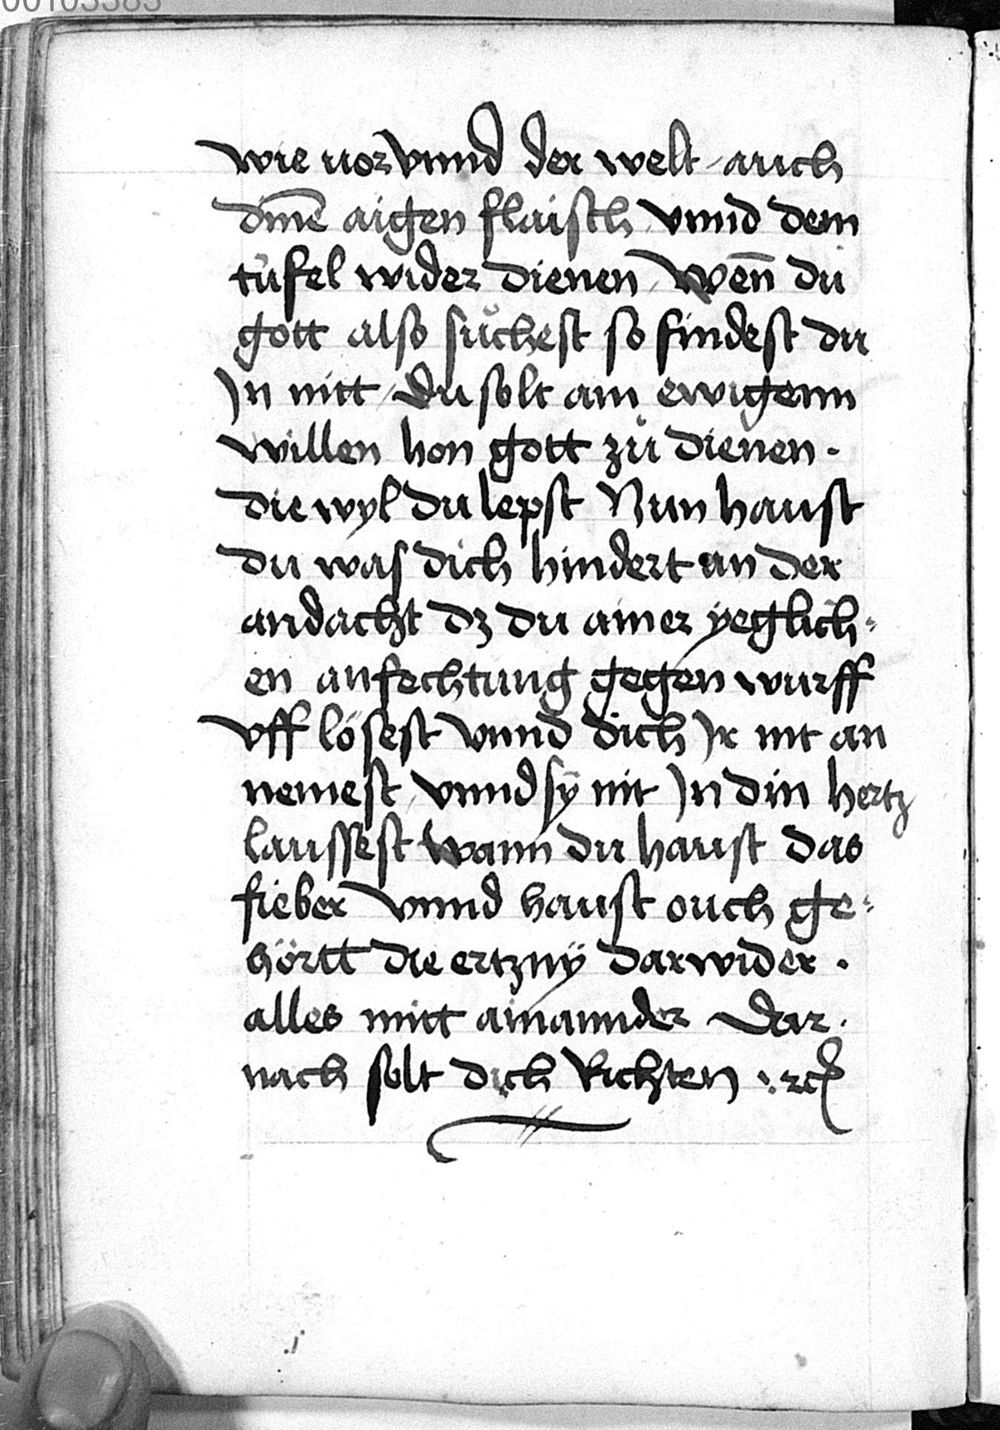 00103383
wie vor vnnd der welt / auch
dinē aigen flaisch / vnnd dem
tüfel wider dienen / Wen̄ du
gott also sůchest so findest du
Jn nitt / du solt ain ewigenn
willen hon gott zů dienen ·
die wyl du lepst Nun haust
du was dich hindert an der
andacht dz du ainer yeglich⸗
en anfechtung gegen wurff
vff lösest vnnd dich Jr nit an
nemest / vnnd sÿ nit Jn din hertz
laussest wann du haust das
fieber vnnd haust ouch ge⸗
hörtt die ertznÿ darwider ·
alles mitt ainannder Dar ·
nach solt dich Richten ·: ꝛcꝭ